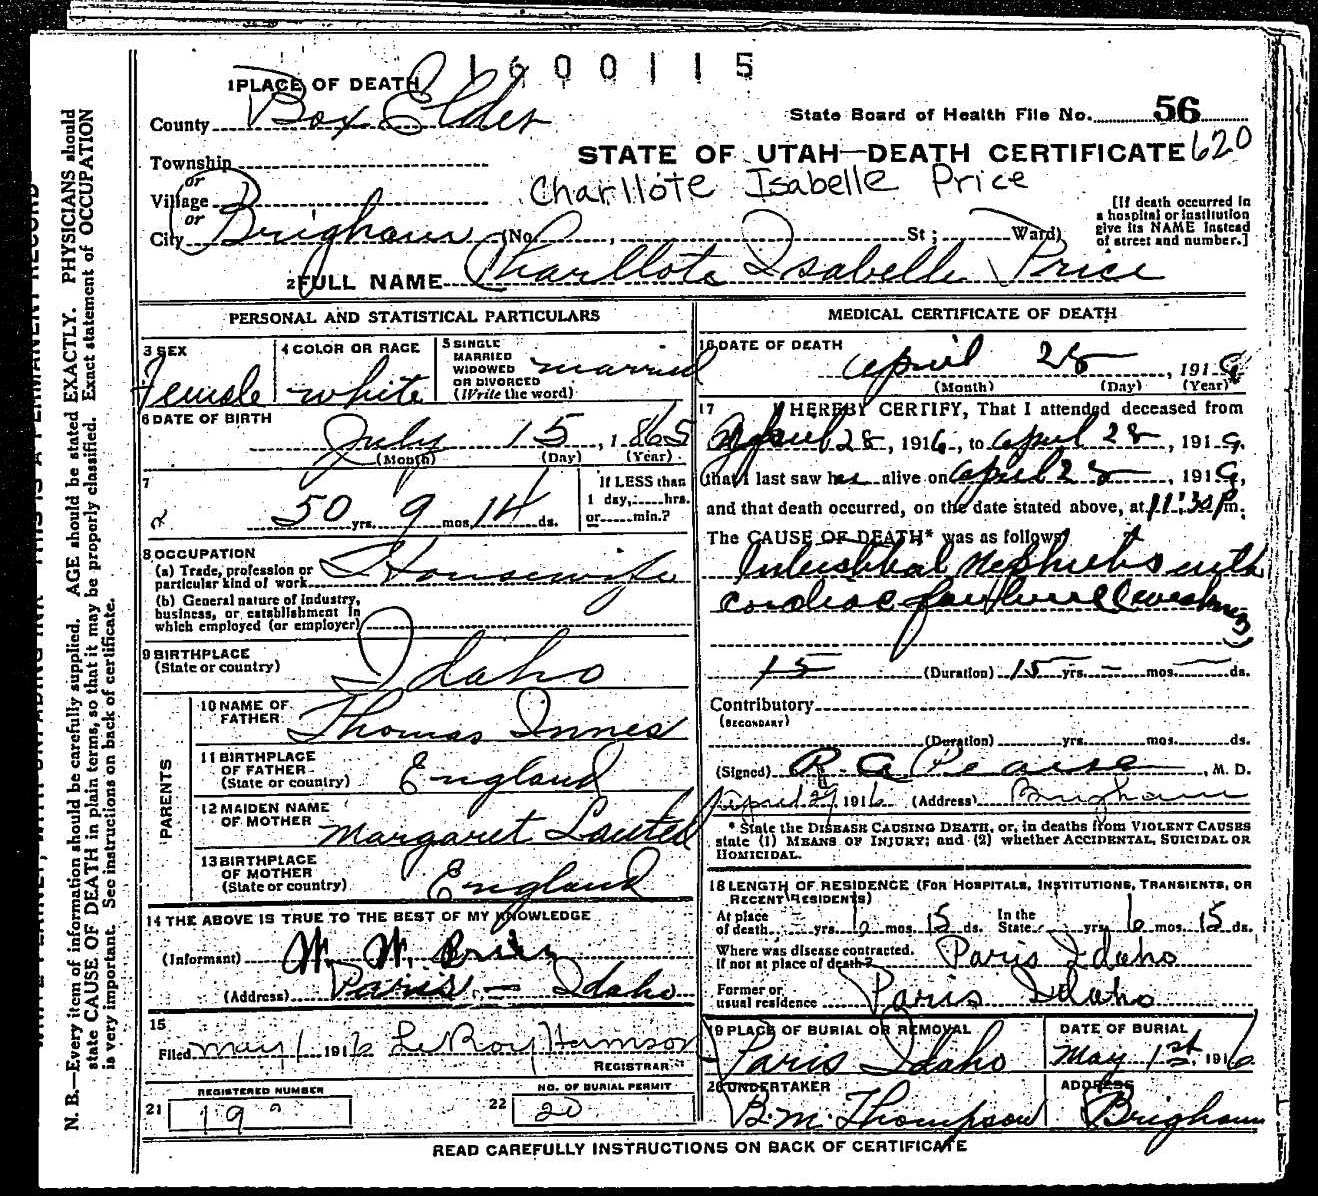 1600115
1 PLACE OF DEATH
County Box Elder
State Board of Health File No. 56
Township
STATE OF UTAH—DEATH CERTIFICATE 620
or
Village
Charllote Isabelle Price
or
City Brigham (No. , St ; Ward)
[If death occurred in
a hospital or institution
give its NAME instead
of street and number.]
2 FULL NAME Charllote Isabelle Price
PERSONAL AND STATISTICAL PARTICULARS
3 SEX
Female
4 COLOR OR RACE
white
5 SINGLE
MARRIED
WIDOWED
OR DIVORCED
(Write the word)
married
6 DATE OF BIRTH
July 15, 1865
(Month) (Day) (Year)
7
50 yrs. 9 mos. 14 ds.
If LESS than
1 day, hrs.
or min.?
8 OCCUPATION
(a) Trade, profession or
particular kind of work Housewife
(b) General nature of industry,
business, or establishment in
which employed (or employer)
9 BIRTHPLACE
(State or country) Idaho
PARENTS
10 NAME OF
FATHER Thomas Innes
11 BIRTHPLACE
OF FATHER
(State or country) England
12 MAIDEN NAME
OF MOTHER Margaret
13 BIRTHPLACE
OF MOTHER
(State or country) England
14 THE ABOVE IS TRUE TO THE BEST OF MY KNOWLEDGE
(Informant) W. W. Price
(Address) Paris - Idaho
15
Filed May 1 1916 LeRoy Harmson
REGISTRAR
REGISTERED NUMBER
21 19
NO. OF BURIAL PERMIT
22 20
MEDICAL CERTIFICATE OF DEATH
16 DATE OF DEATH
April 28, 191
(Month) (Day) (Year)
17 I HEREBY CERTIFY, That I attended deceased from
April 28, 1916, to April 28, 191
that I last saw h alive on April 28, 191
and that death occurred, on the date stated above, at 11:30 P m.
The CAUSE OF DEATH* was as follows:
Interstitial Nephritis with
cardiac
15 (Duration) 15 yrs. — mos. — ds.
Contributory
(SECONDARY)
(Duration) yrs. mos. ds.
(Signed) R. A. Pearse, M. D.
April 29, 1916 (Address) Brigham
* State the DISEASE CAUSING DEATH, or, in deaths from VIOLENT CAUSES
state (1) MEANS OF INJURY; and (2) whether ACCIDENTAL, SUICIDAL OR
HOMICIDAL.
18 LENGTH OF RESIDENCE (FOR HOSPITALS, INSTITUTIONS, TRANSIENTS, OR
RECENT RESIDENTS)
At place
of death yrs. 6 mos. 15 ds.
In the
State yrs. 6 mos. 15 ds.
Where was disease contracted,
if not at place of death? Paris Idaho
Former or
usual residence Paris Idaho
19 PLACE OF BURIAL OR REMOVAL
Paris Idaho
DATE OF BURIAL
May 1st 1916
20 UNDERTAKER
B. M. Thompson
ADDRESS
Brigham
READ CAREFULLY INSTRUCTIONS ON BACK OF CERTIFICATE
N. B.—Every item of information should be carefully supplied. AGE should be stated EXACTLY. PHYSICIANS should
state CAUSE OF DEATH in plain terms, so that it may be properly classified. Exact statement of OCCUPATION
is very important. See instructions on back of certificate.